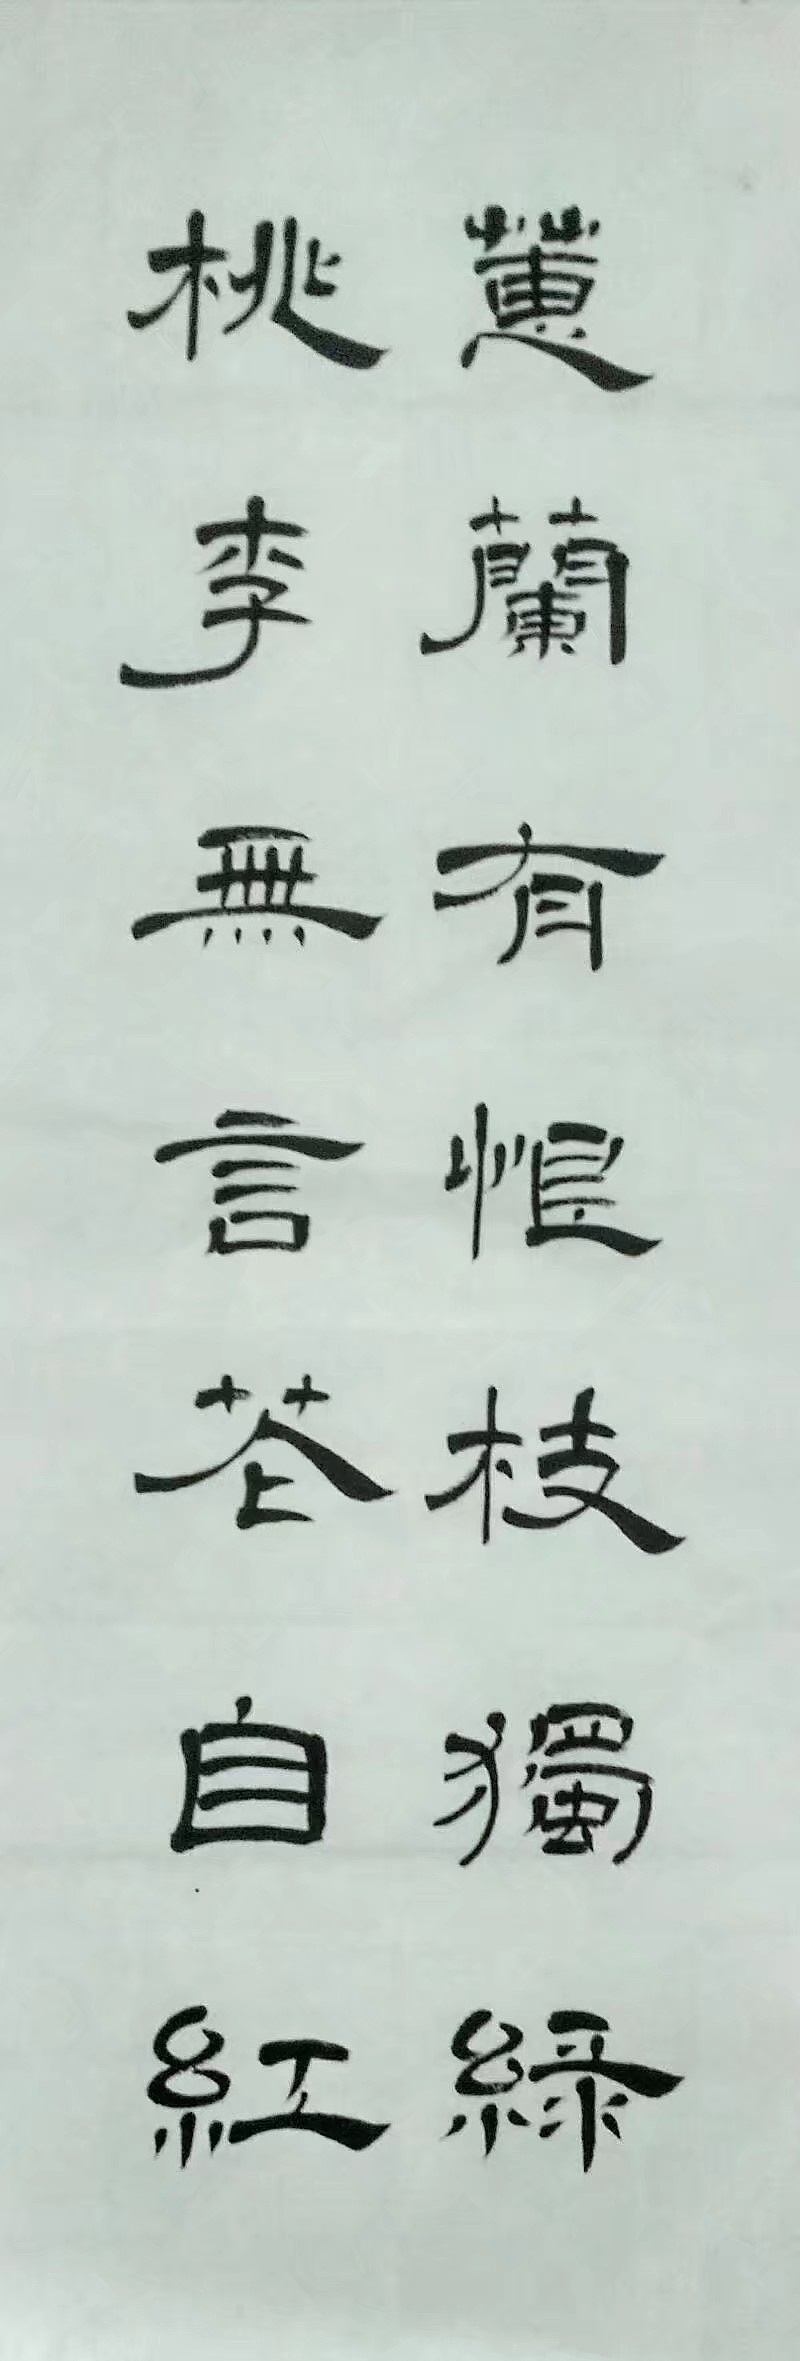 蕙蘭有恨枝獨綠
桃李無言花自紅